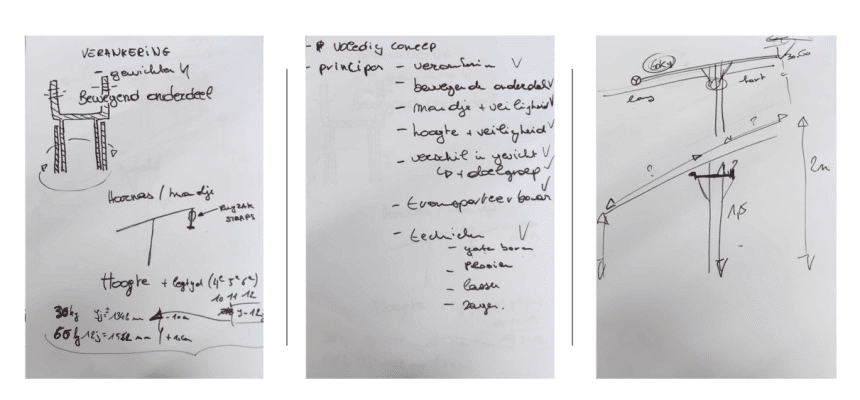 VERANKERING
- gewichten
Bewegend onderdeel
Harnas / mandje
RUGZAK
STRAPS
Hoogte + leeftijd (4e 5e 6e)
10 11 12
30kg
60kg
+10cm
- volledig concep
- principes - verankerin
- bewegende onderdel
- mandje + veiligheid
- hoogte + veiligheid
- verschil in gewicht
↳ + doelgroep
- transporteerbaar
- technieken
- gaten boren
- plooien
- lassen
- zagen.
60kg
30-60
las
hart
?
?
?
2m
1,5